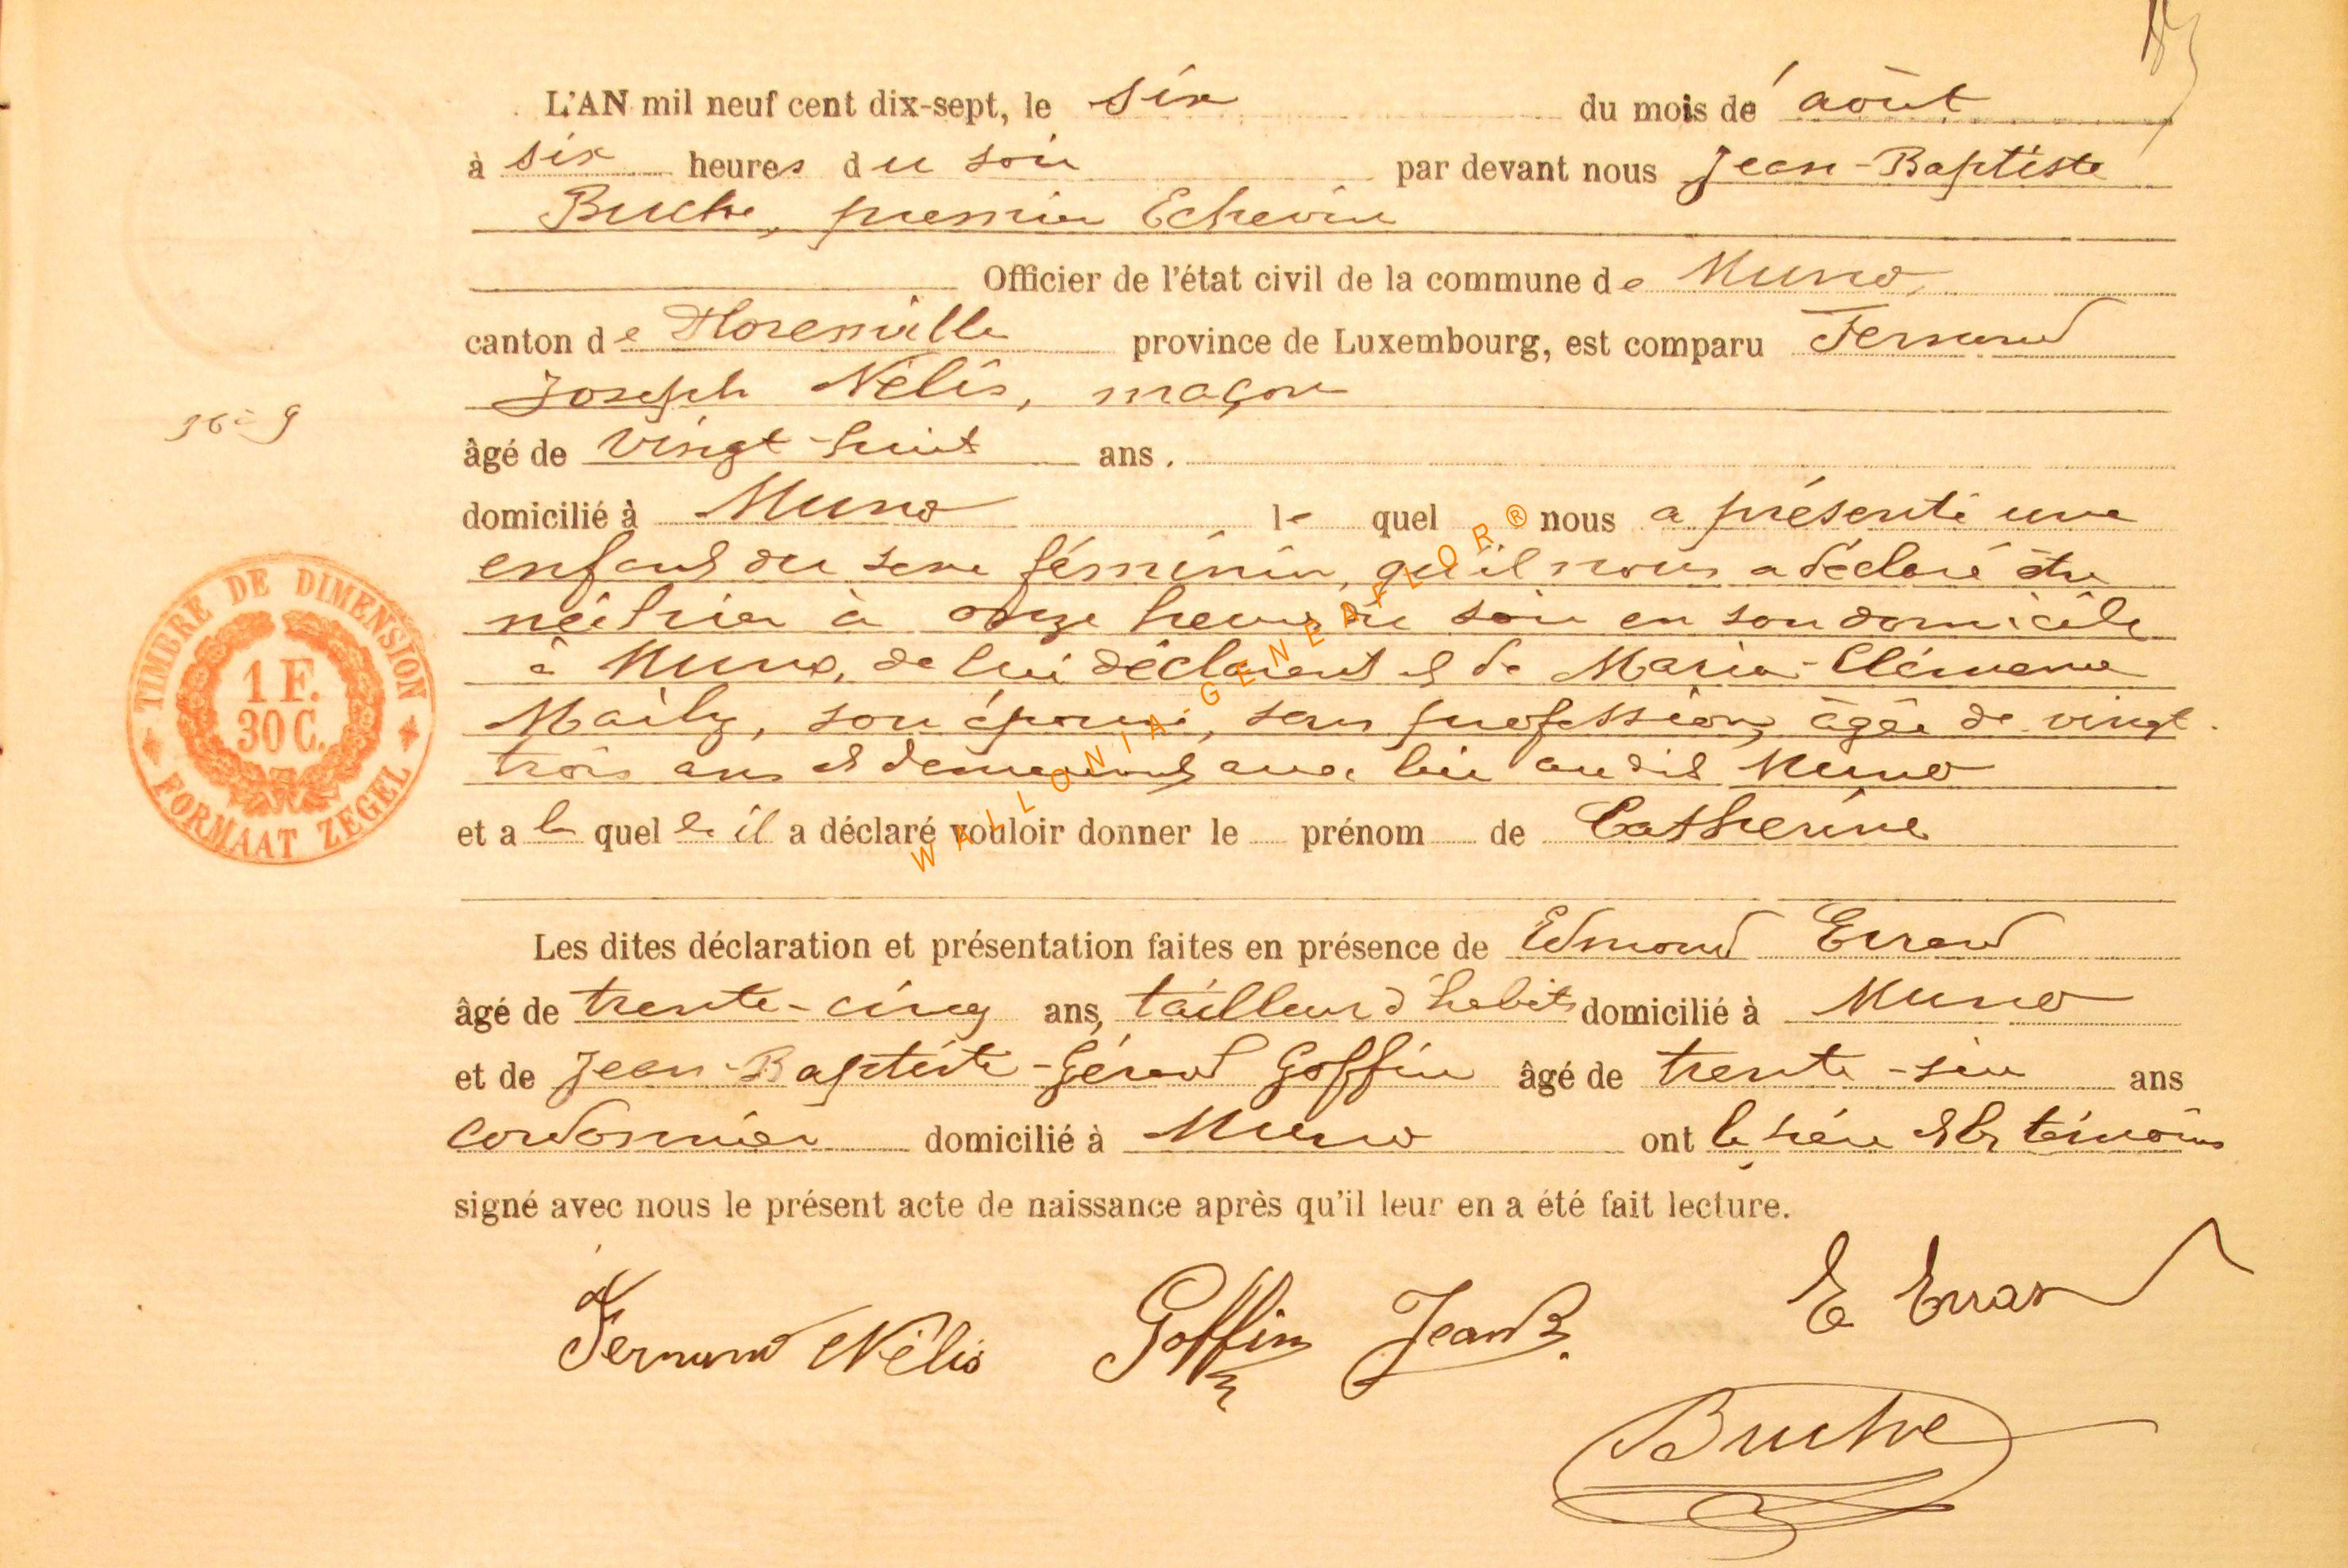 L'AN mil neuf cent dix-sept, le six du mois de août
à six heures du soir par devant nous Jean-Baptiste
Buche, premier Echevin
Officier de l'état civil de la commune de Muno,
canton de Florenville province de Luxembourg, est comparu Fernand
Joseph Nélis, maçon
âgé de vingt-huit ans.
domicilié à Muno lequel nous a présenté une
enfant du sexe féminin, qu'il nous a déclaré être
née hier à onze heures du soir en son domicile
à Muno, de lui déclarant et de Marie-Clémence
Maily, son épouse, sans profession, âgée de vingt-
trois ans et demeurant avec lui au dit Muno
et a la quelle il a déclaré vouloir donner le prénom de Catherine
Les dites déclaration et présentation faites en présence de Edmond Errard
âgé de trente-cinq ans, tailleur d'habits domicilié à Muno
et de Jean-Baptiste-Gérard Goffin âgé de trente-six ans
cordonnier domicilié à Muno ont le père et les témoins
signé avec nous le présent acte de naissance après qu'il leur en a été fait lecture.
Fernand Nélis Goffin Jean B. E Errard
Buche
TIMBRE DE DIMENSION
1 F.
30 C.
FORMAAT ZEGEL
WALLONIA-GENEAFLOR®